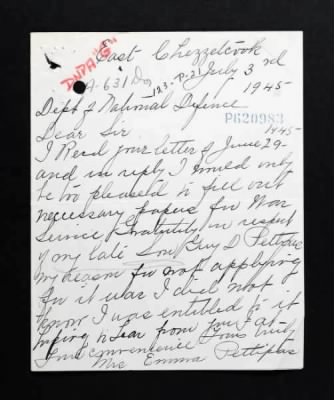 East Chezzetcook
DVA "G"
A-631 Dg
123-P-21 July 3rd
1945
Dept of National Defence
P620983
Dear Sir
1945
I Read your letter of June 29-
and in reply I would only
be too pleased to fill out
necessary papers for War
Service Gratutity in respect
of my late Son Guy D Pettipas
my reason for not applying
for it was I did not
know I was entitled to it
hoping to hear from you at
your convenience Yours truly
Mrs Emma Pettipas